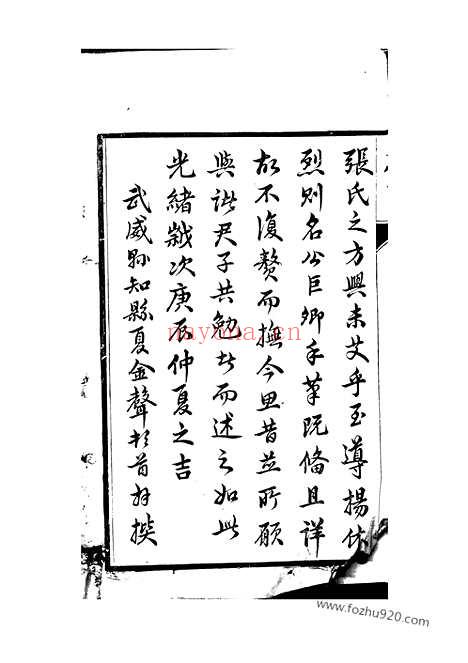 張氏之方興未艾乎至導揚休
烈則名公巨卿手筆既備且詳
故不復贅而撫今思昔並所願
與諸君子共勉者而述之如此
光緒歲次庚辰仲夏之吉
武威縣知縣夏金聲頓首拜撰
nayona.cn
www.fozhu920.com